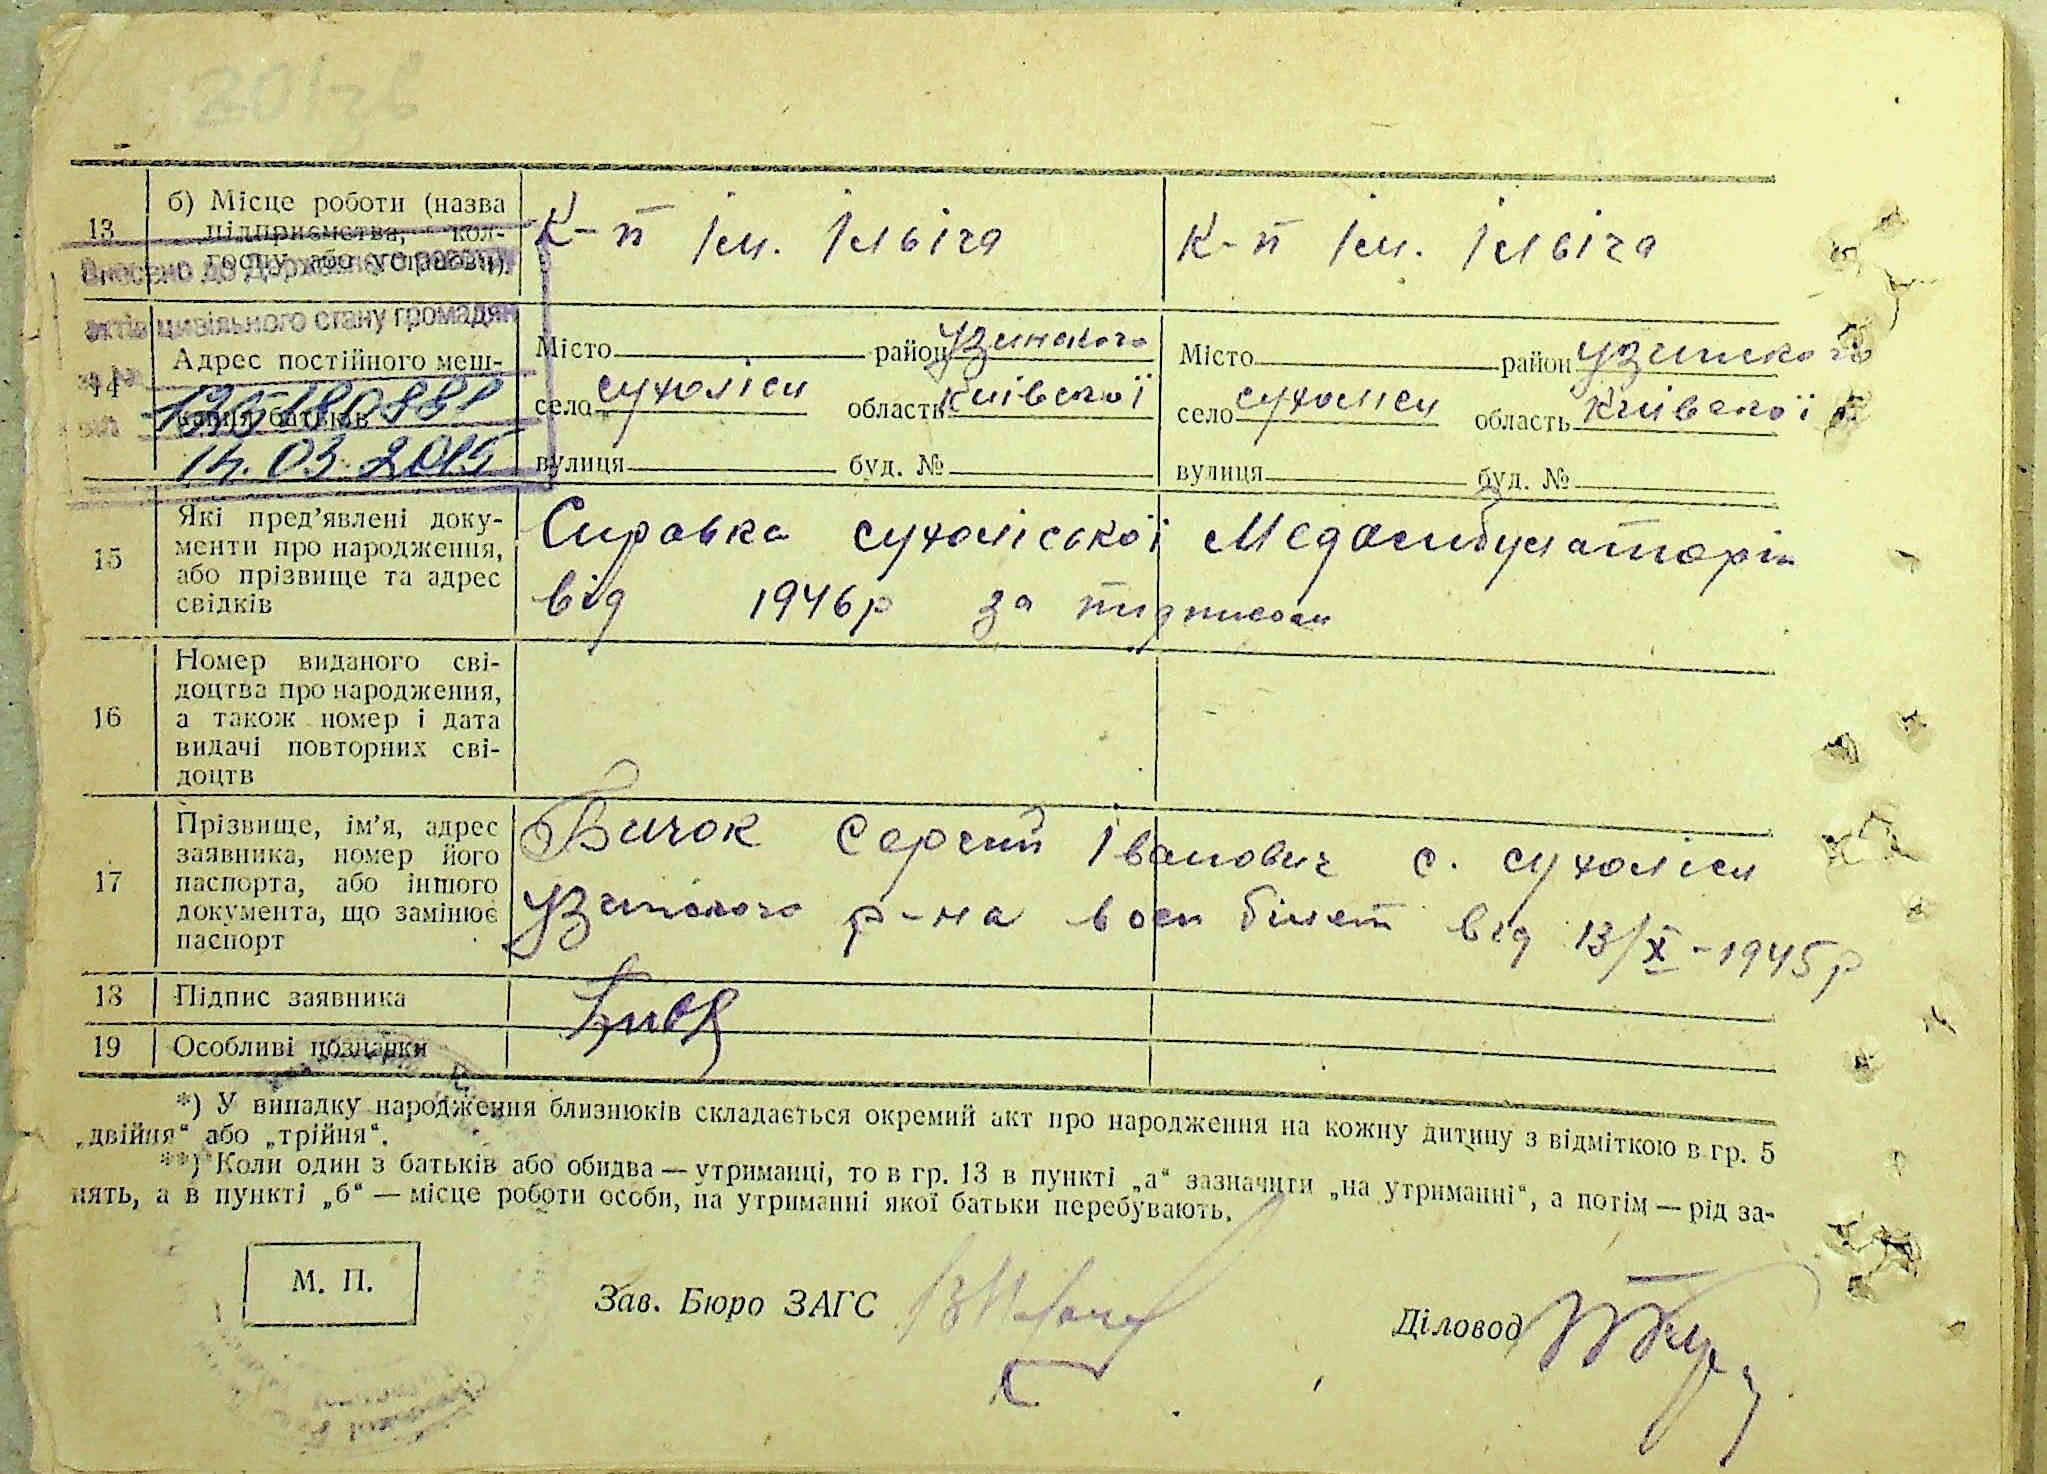 13
б) Місце роботи (назва
підприємства, кол-
госпу або установи).
К-п Ім. Ілвіча
К-п Ім. Ілвіча
Внесено до Державного реєстру
актів цивільного стану громадян
14
Адрес постійного меш-
кання батьків
14.03.2015
Місто район Узинского
село Сухоліси область Киівскої
вулиця буд. №
Місто район Узинского
село Сухоліси область Киівскої
вулиця буд. №
15
Які пред’явлені доку-
менти про народження,
або прізвище та адрес
свідків
Справка сухоліської Медамбулаторіи
від 1946р за підписом
16
Номер виданого сві-
доцтва про народження,
а також номер і дата
видачі повторних сві-
доцтв
17
Прізвище, ім’я, адрес
заявника, номер його
паспорта, або іншого
документа, що замінює
паспорт
Бичок Сергий Іванович с. Сухоліси
Узинского р-на воен білет від 13/X-1945р
18 Підпис заявника
19 Особливі позначки
*) У випадку народження близнюків складається окремий акт про народження на кожну дитину з відміткою в гр. 5
„двійня“ або „трійня“.
**) Коли один з батьків або обидва — утриманці, то в гр. 13 в пункті „а“ зазначити „на утриманні“, а потім — рід за-
нять, а в пункті „б“ — місце роботи особи, на утриманні якої батьки перебувають.
М. П.
Зав. Бюро ЗАГС
Діловод